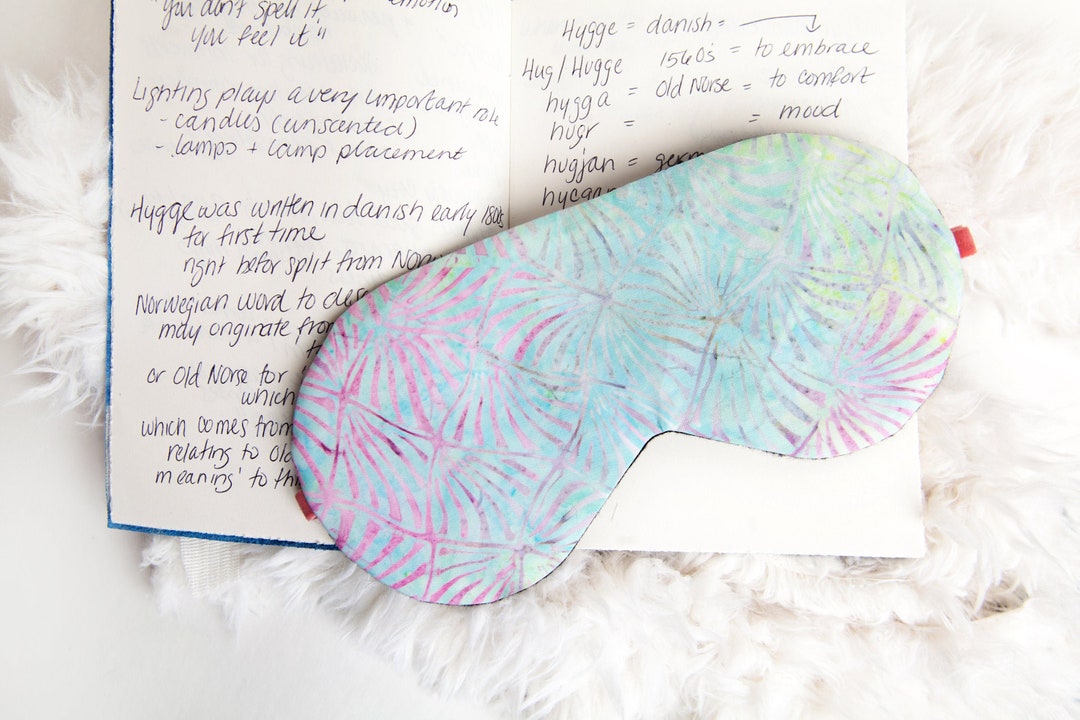 "you don't spell it, emotion
you feel it"
Lighting plays a very important role
- candles (unscented)
- lamps + lamp placement
Hygge was written in danish early 1800s
for first time
right befor split from
Norwegian word to
may originate from
or Old Norse for
which
which comes from
relating to Old
meaning' to
Hygge = danish =
Hug/Hugge 1560's = to embrace
hygga = Old Norse = to comfort
hugr = = mood
hugjan =